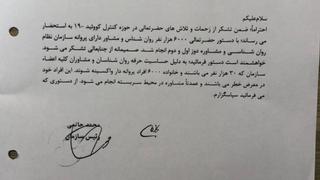 سلام علیکم
احتراماً ضمن تشکر از زحمات و تلاش های حضرتعالی در حوزه کنترل کووئید -۱۹ به استحضار
می رساند: با دستور حضرتعالی ۶۰۰۰ هزار نفر روان شناس و مشاور دارای پروانه سازمان نظام
روان شناسی و مشاوره دوز اول و دوم انجام شد. صمیمانه از جنابعالی تشکر می شود.
خواهشمند است دستور فرمائید: به دلیل حساسیت حرفه روان شناسان و مشاوران کلیه اعضاء
سازمان که ۳۰ هزار نفر می باشند و خانواده ۶۰۰۰ افراد پروانه دار واکسینه شوند. این افراد خود
در معرض خطر می باشند و عمدتاً مشاوره در محیط سربسته انجام می شود. از دستوری که
می فرمائید سپاسگزارم.
محمد حاتمی
رئیس سازمان